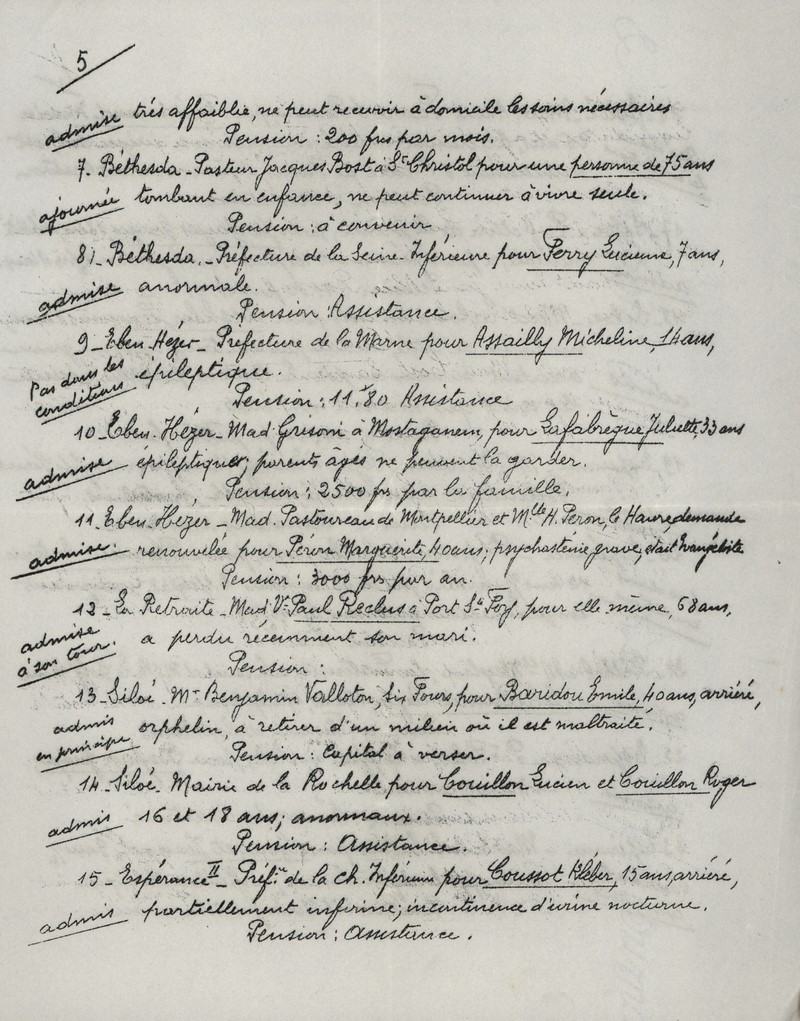 5
très affaiblie, ne peut recevoir à domicile les soins nécessaires
admise
Pension : 200 frs par mois.
7. Béthesda - Pasteur Jacques Bost à St Christol pour une personne de 75 ans
ajournée tombant en enfance, ne peut continuer à vivre seule.
Pension : à convenir
8)- Béthesda. - Préfecture de la Seine-Inférieure pour Ferry Lucienne, 7 ans,
admise anormale.
Pension : Assistance.
9 - Eben-Hézer - Préfecture de la Marne pour Assailly Micheline, 14 ans,
Pas dans les
conditions
épileptique.
Pension : 11,80 Assistance
10 - Eben-Hézer - Mad. Grisoni à Mostaganem, pour Lafabrègue Juliette, 33 ans
admise épileptique; parents âgés ne peuvent la garder.
Pension : 2500 frs par la famille.
11 - Eben-Hézer - Mad. Pastoureau de Montpellier et Mlle H. Péron, le Havre demande
admise. renouvelée pour Péron Marguerite, 40 ans; psychasténie grave, était Evangéliste
Pension : 3000 frs par an.
12 - La Retraite - Mad. Ve Paul Reclus à Port Ste Foy, pour elle-même, 68 ans,
admise
à son tour.
a perdu récemment son mari.
Pension :
13 - Siloé - Mr Benjamin Valloton, Six Fours, pour Baridou Emile, 40 ans, arriéré,
admis
en principe
orphelin, à retirer d'un milieu où il est maltraité.
Pension : Capital à verser.
14 - Siloé - Mairie de la Rochelle pour Couillon Lucien et Couillon Roger
admis 16 et 18 ans; anormaux.
Pension : Assistance.
15 - Espérance II - Préf.re de la Ch. Inférieure pour Coussot Kléber, 15 ans, arriéré,
admis partiellement infirme; incontinence d'urine nocturne.
Pension : Assistance.